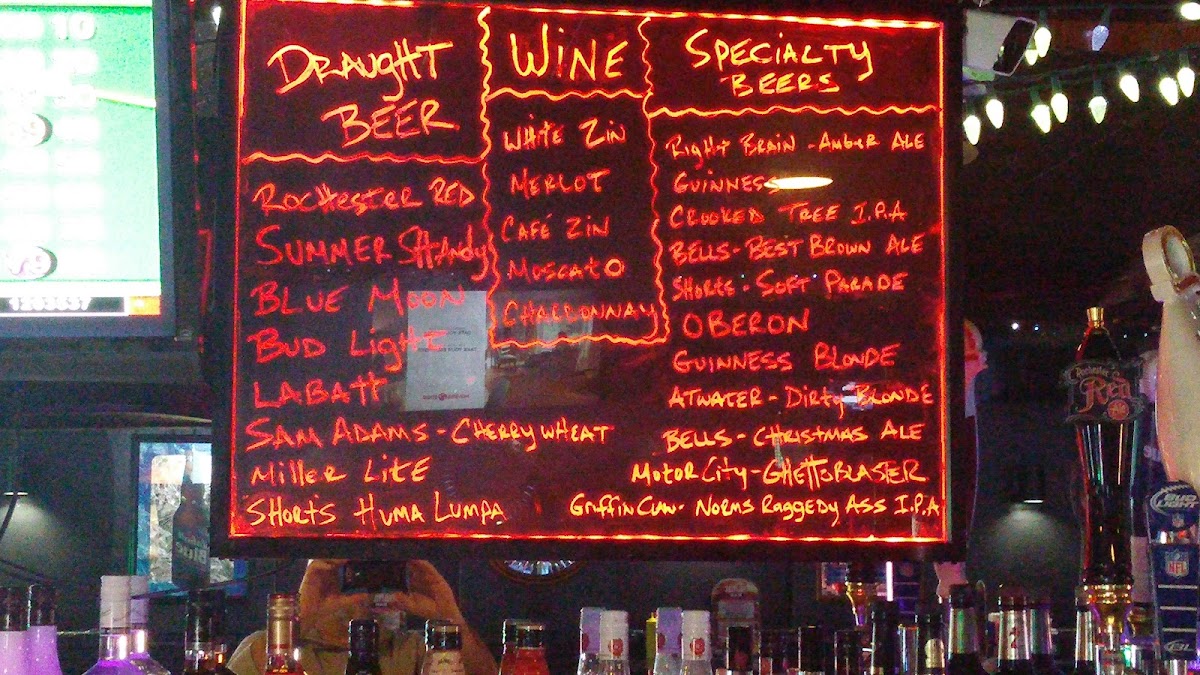 DRAUGHT
BEER
ROCHESTER RED
SUMMER SHANDY
BLUE MOON
BUD LIGHT
LABATT
SAM ADAMS - CHERRY WHEAT
MILLER LITE
SHORTS HUMA LUMPA
WINE
WHITE ZIN
MERLOT
CAFÉ ZIN
MUSCATO
CHARDONNAY
SPECIALTY
BEERS
RIGHT BRAIN - AMBER ALE
GUINNESS
CROOKED TREE I.P.A
BELLS - BEST BROWN ALE
SHORTS - SOFT PARADE
OBERON
GUINNESS BLONDE
ATWATER - DIRTY BLONDE
BELLS - CHRISTMAS ALE
MOTOR CITY - GHETTOBLASTER
GRIFFIN CLAW - NORMS RAGGEDY ASS I.P.A
Red
BUD
LIGHT
NFL
BL
10